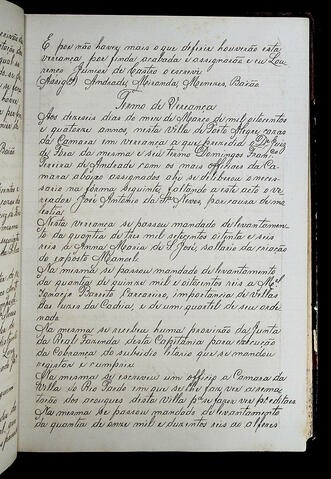 E por não haver mais o que deferir houverão esta
vereança por finda acabada e assignarão e eu Lou
renço Junior de Castro o escrevi
Andrade, Miranda, Menezes, Barão
Termo de Vereança
Aos dezeseis dias do mez de Março de mil oitocentos
e quatorze annos, nesta Villa de Porto Alegre, cazas
da Camara em vereança a que prezidio o
de Fora da mesma e seu termo Domingos
Pereira de Andrade com os mais officiaes da Ca
mara abaixo assignados ahy se deliberou o neces
sario na forma seguinte, faltando a este acto o ve
reador José Antonio da Neves por cauza de mo
lestia
Nesta vereança se passou mandado de levantamen
to da quantia de tres mil settecentos oitenta e seis
reis á Anna Maria de S. José, sallario da criação
do exposto Manoel
Na mesma se passou mandado de levantamento
da quantia de quinze mil e oitocentos reis a M.el
Barreto Carcereiro, importancia de Vellas
das luzes da Cadea, e de um quartel de seu orde
nado
Na mesma se recebeu huma provizão da Junta
da Real Fazenda desta Capitania para execução
da Cobrança do subsidio literario que se mandou
registar e cumprir
Na mesma se escreveu um officio a Camara da
Villa do Rio Pardo em que se lhe faz ver a rema
tação dos açougues desta Villa p.a se fazer ver p.r editaes
Na mesma se passou mandado de levantamento
da quantia de onze mil e duzentos reis ao alferes